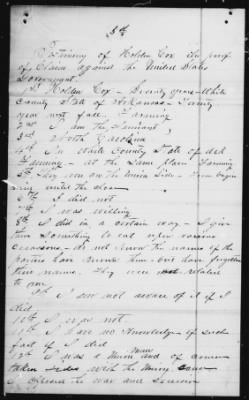 5th
Testimony of Holden Cox in proof
of Claim against the United States
Government.
1st Holden Cox - Seventy years - White
County State of Arkansas -
year past fall. Farming
2nd I am the Claimant,
3rd North Carolina
4th In White County State of Ark
Farming - at the same place Farming
5th They were on the Union Side - from begin
ning until the close
6th I did not
7th I was willing
8th I did in a certain way - I give
them something to eat upon various
occasions - do not know the names of the
parties have known them - but have forgotten
their name. They were not related
to me
9th I am not aware of it if I
did
10th I was not
11th I have no Knowledge of such
fact if I did
12th I was a Union man and of course
taken sides with the Union
opposed the war and secession